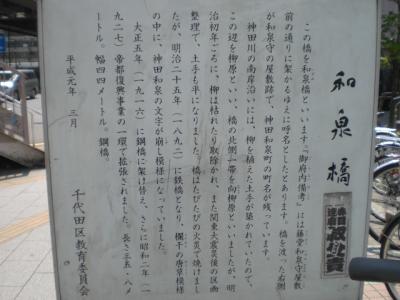 和泉橋
この橋を和泉橋といいます。『御府内備考』には藤堂和泉守屋敷
前の通りに架かるゆえに呼名としたとあります。橋を渡った右側
が和泉守の屋敷跡で、神田和泉町の町名が残っています。
神田川の南岸沿いには、柳を植えた土手が築かれていたので、
この辺を柳原といい、橋の北側一帯を向柳原といいましたが、明
治初年ごろに、柳は枯れたり取除かれ、また関東大震災後の区画
整理で、土手を平になりました。橋はたびたびの火災で焼けまし
たが、明治二十五年（一八九二）に鉄橋となり、欄干の唐草模様
の中に、神田和泉の文字が崩し模様になっていました。
大正五年（一九一六）に鋼橋に架け替え、さらに昭和二年（一
九二七）帝都復興事業の一環で拡張されました。長さ三五・八メ
ートル。幅四四メートル。鋼橋。
平成元年　三月
千代田区教育委員会